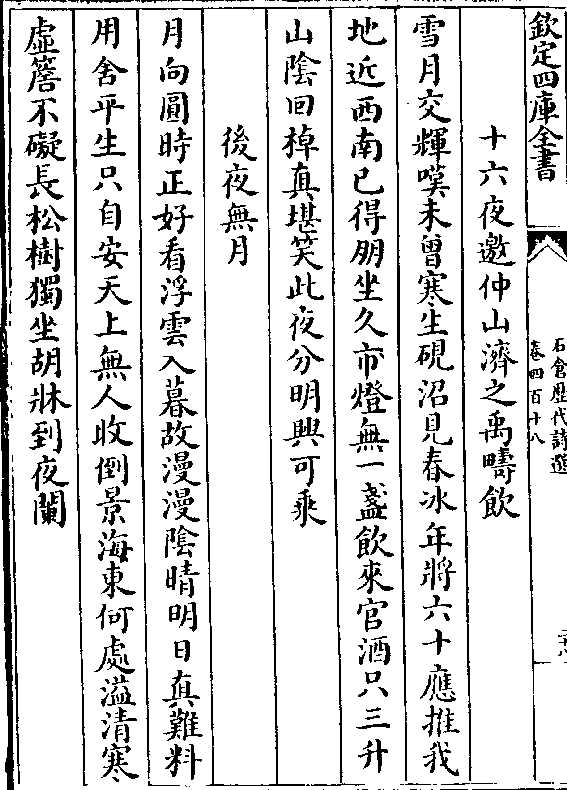 欽定四庫全書
石倉歷代詩選
卷四百十八
十六夜邀仲山濟之禹疇飲
雪月交輝嘆未曾寒生硯沼見春冰年將六十應推我
地近西南已得朋坐久市燈無一盞飲來官酒只三升
山陰回棹真堪笑此夜分明興可乘
後夜無月
月向圓時正好看浮雲入暮故漫漫陰晴明日真難料
用舍平生只自安天上無人收倒景海東何處溢清寒
虛簷不礙長松樹獨坐胡牀到夜闌